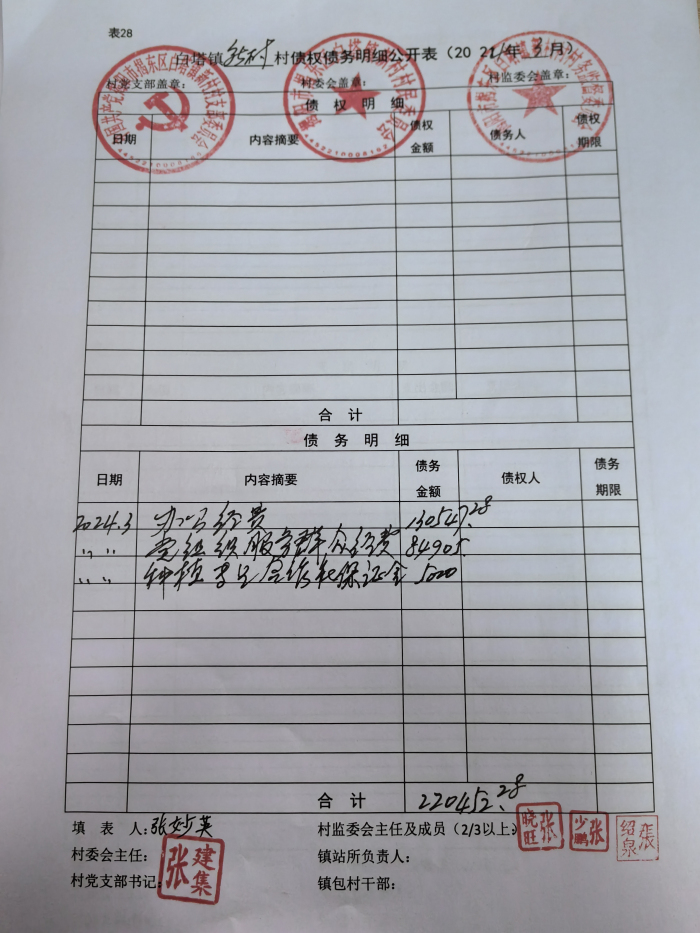 表28
白塔镇新村村债权债务明细公开表（2024年3月）
村党支部盖章： 村委会盖章： 村监委会盖章：
债权明细
日期 内容摘要 债权金额 债务人 债权期限
合计
债务明细
日期 内容摘要 债务金额 债权人 债务期限
2024.3 办公经费 130547.28
〃 〃 党组织服务群众经费 84905.
〃 〃 种植 保证金 5000
合计 220452.28
填表人：张妙英 村监委会主任及成员（2/3以上） 张晓旺 张少鹏 张绍泉
村委会主任： 镇站所负责人：
张建集
村党支部书记： 镇包村干部：